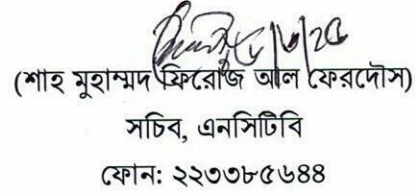 (শাহ মুহাম্মদ ফিরোজ আল ফেরদৌস)
সচিব, এনসিটিবি
ফোন: ২২৩৩৮৫৬৪৪